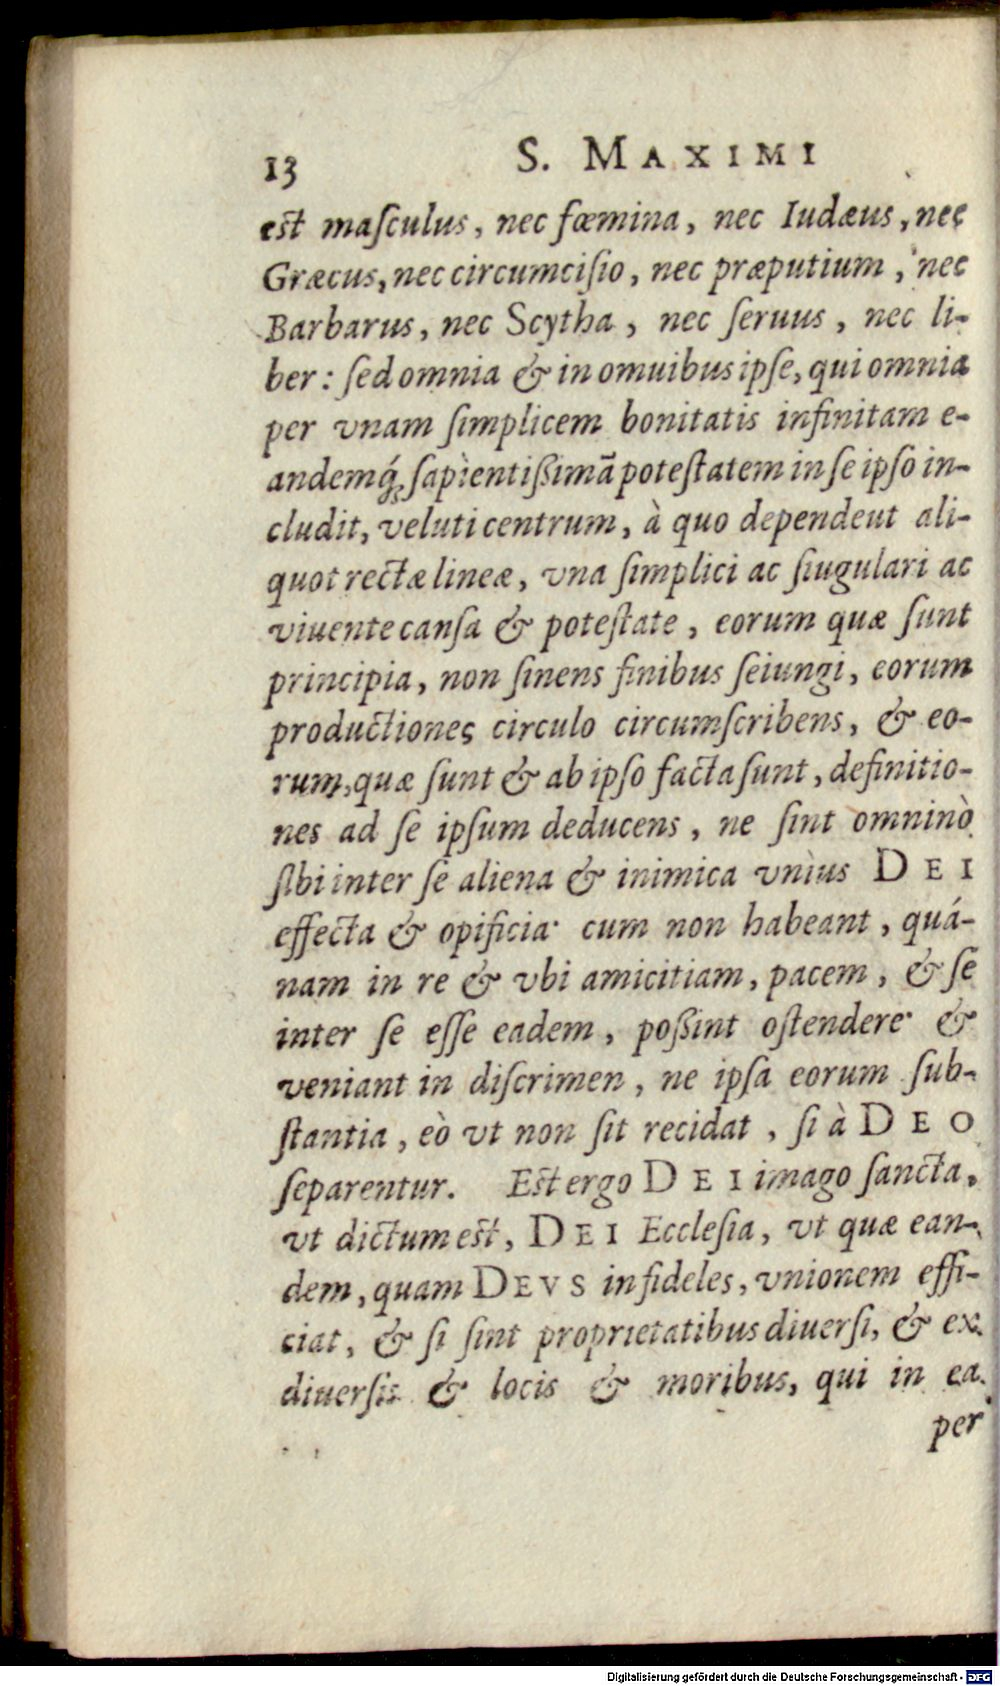 13 S. MAXIMI
est masculus, nec fœmina, nec Iudæus, nec
Græcus, nec circumcisio, nec præputium, nec
Barbarus, nec Scytha, nec seruus, nec li-
ber: sed omnia & in omuibus ipse, qui omnia
per vnam simplicem bonitatis infinitam e-
andemq́; sapientißimā potestatem in se ipso in-
cludit, veluti centrum, à quo dependeut ali-
quot rectæ lineæ, vna simplici ac siugulari ac
viuente cansa & potestate, eorum quæ sunt
principia, non sinens finibus seiungi, eorum
productiones circulo circumscribens, & eo-
rum, quæ sunt & ab ipso facta sunt, definitio-
nes ad se ipsum deducens, ne sint omninò
sibi inter se aliena & inimica vnius DEI
effecta & opificia· cum non habeant, quá-
nam in re & vbi amicitiam, pacem, & se
inter se esse eadem, poßint ostendere· &
veniant in discrimen, ne ipsa eorum sub-
stantia, eò vt non sit recidat, si à DEO
separentur. Est ergo DEI imago sancta,
vt dictum est, DEI Ecclesia, vt quæ ean-
dem, quam DEVS in fideles, vnionem effi-
ciat, & si sint proprietatibus diuersi, & ex
diuersis & locis & moribus, qui in ea
per
Digitalisierung gefördert durch die Deutsche Forschungsgemeinschaft - DFG